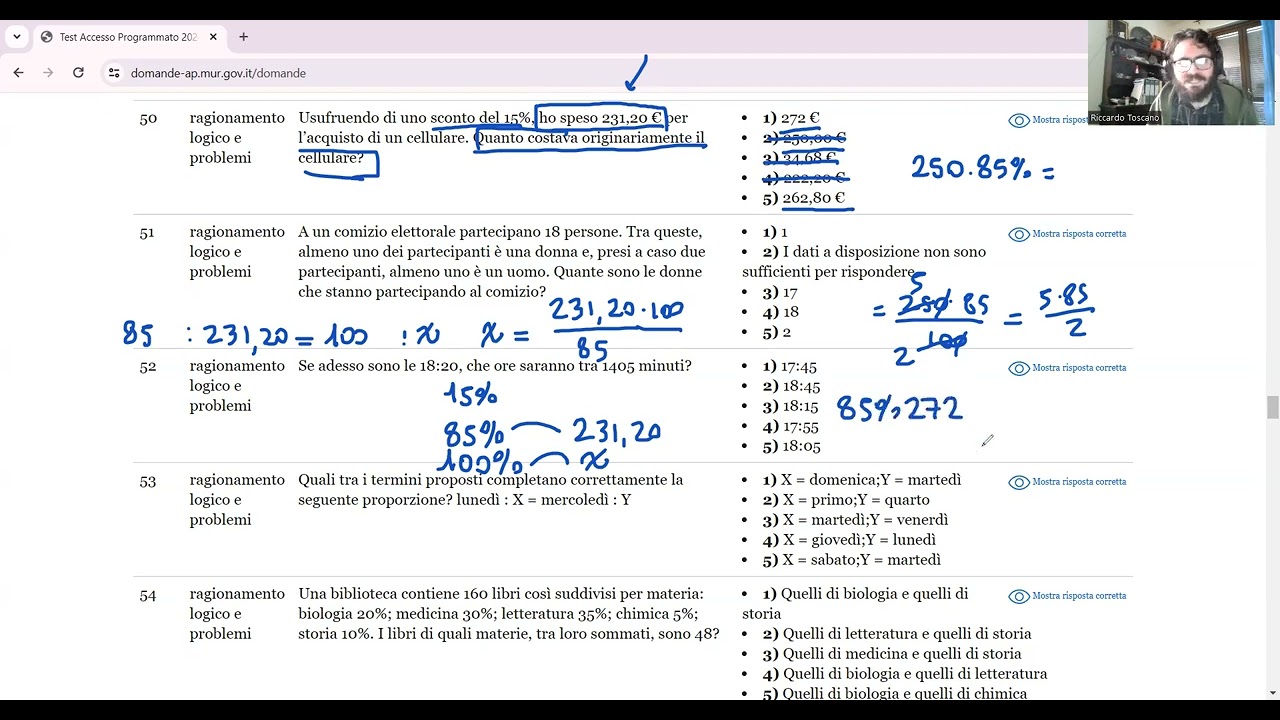 Test Accesso Programmato 202
domande-ap.mur.gov.it/domande
Riccardo Toscano
50
ragionamento
logico e
problemi
Usufruendo di uno sconto del 15%, ho speso 231,20 € per
l'acquisto di un cellulare. Quanto costava originariamente il
cellulare?
1) 272 €
2) 250,00 €
3) 34,68 €
4) 222,20 €
5) 262,80 €
Mostra rispost
250.85% =
51
ragionamento
logico e
problemi
A un comizio elettorale partecipano 18 persone. Tra queste,
almeno uno dei partecipanti è una donna e, presi a caso due
partecipanti, almeno uno è un uomo. Quante sono le donne
che stanno partecipando al comizio?
1) 1
2) I dati a disposizione non sono
sufficienti per rispondere
3) 17
4) 18
5) 2
Mostra risposta corretta
85 : 231,20 = 100 : x x = 231,20·100
85
5
= 250·85 = 5·85
2 100 2
52
ragionamento
logico e
problemi
Se adesso sono le 18:20, che ore saranno tra 1405 minuti?
1) 17:45
2) 18:45
3) 18:15
4) 17:55
5) 18:05
Mostra risposta corretta
15%
85% 231,20
100% x
85%,272
53
ragionamento
logico e
problemi
Quali tra i termini proposti completano correttamente la
seguente proporzione? lunedì : X = mercoledì : Y
1) X = domenica;Y = martedì
2) X = primo;Y = quarto
3) X = martedì;Y = venerdì
4) X = giovedì;Y = lunedì
5) X = sabato;Y = martedì
Mostra risposta corretta
54
ragionamento
logico e
problemi
Una biblioteca contiene 160 libri così suddivisi per materia:
biologia 20%; medicina 30%; letteratura 35%; chimica 5%;
storia 10%. I libri di quali materie, tra loro sommati, sono 48?
1) Quelli di biologia e quelli di
storia
2) Quelli di letteratura e quelli di storia
3) Quelli di medicina e quelli di storia
4) Quelli di biologia e quelli di letteratura
5) Quelli di biologia e quelli di chimica
Mostra risposta corretta